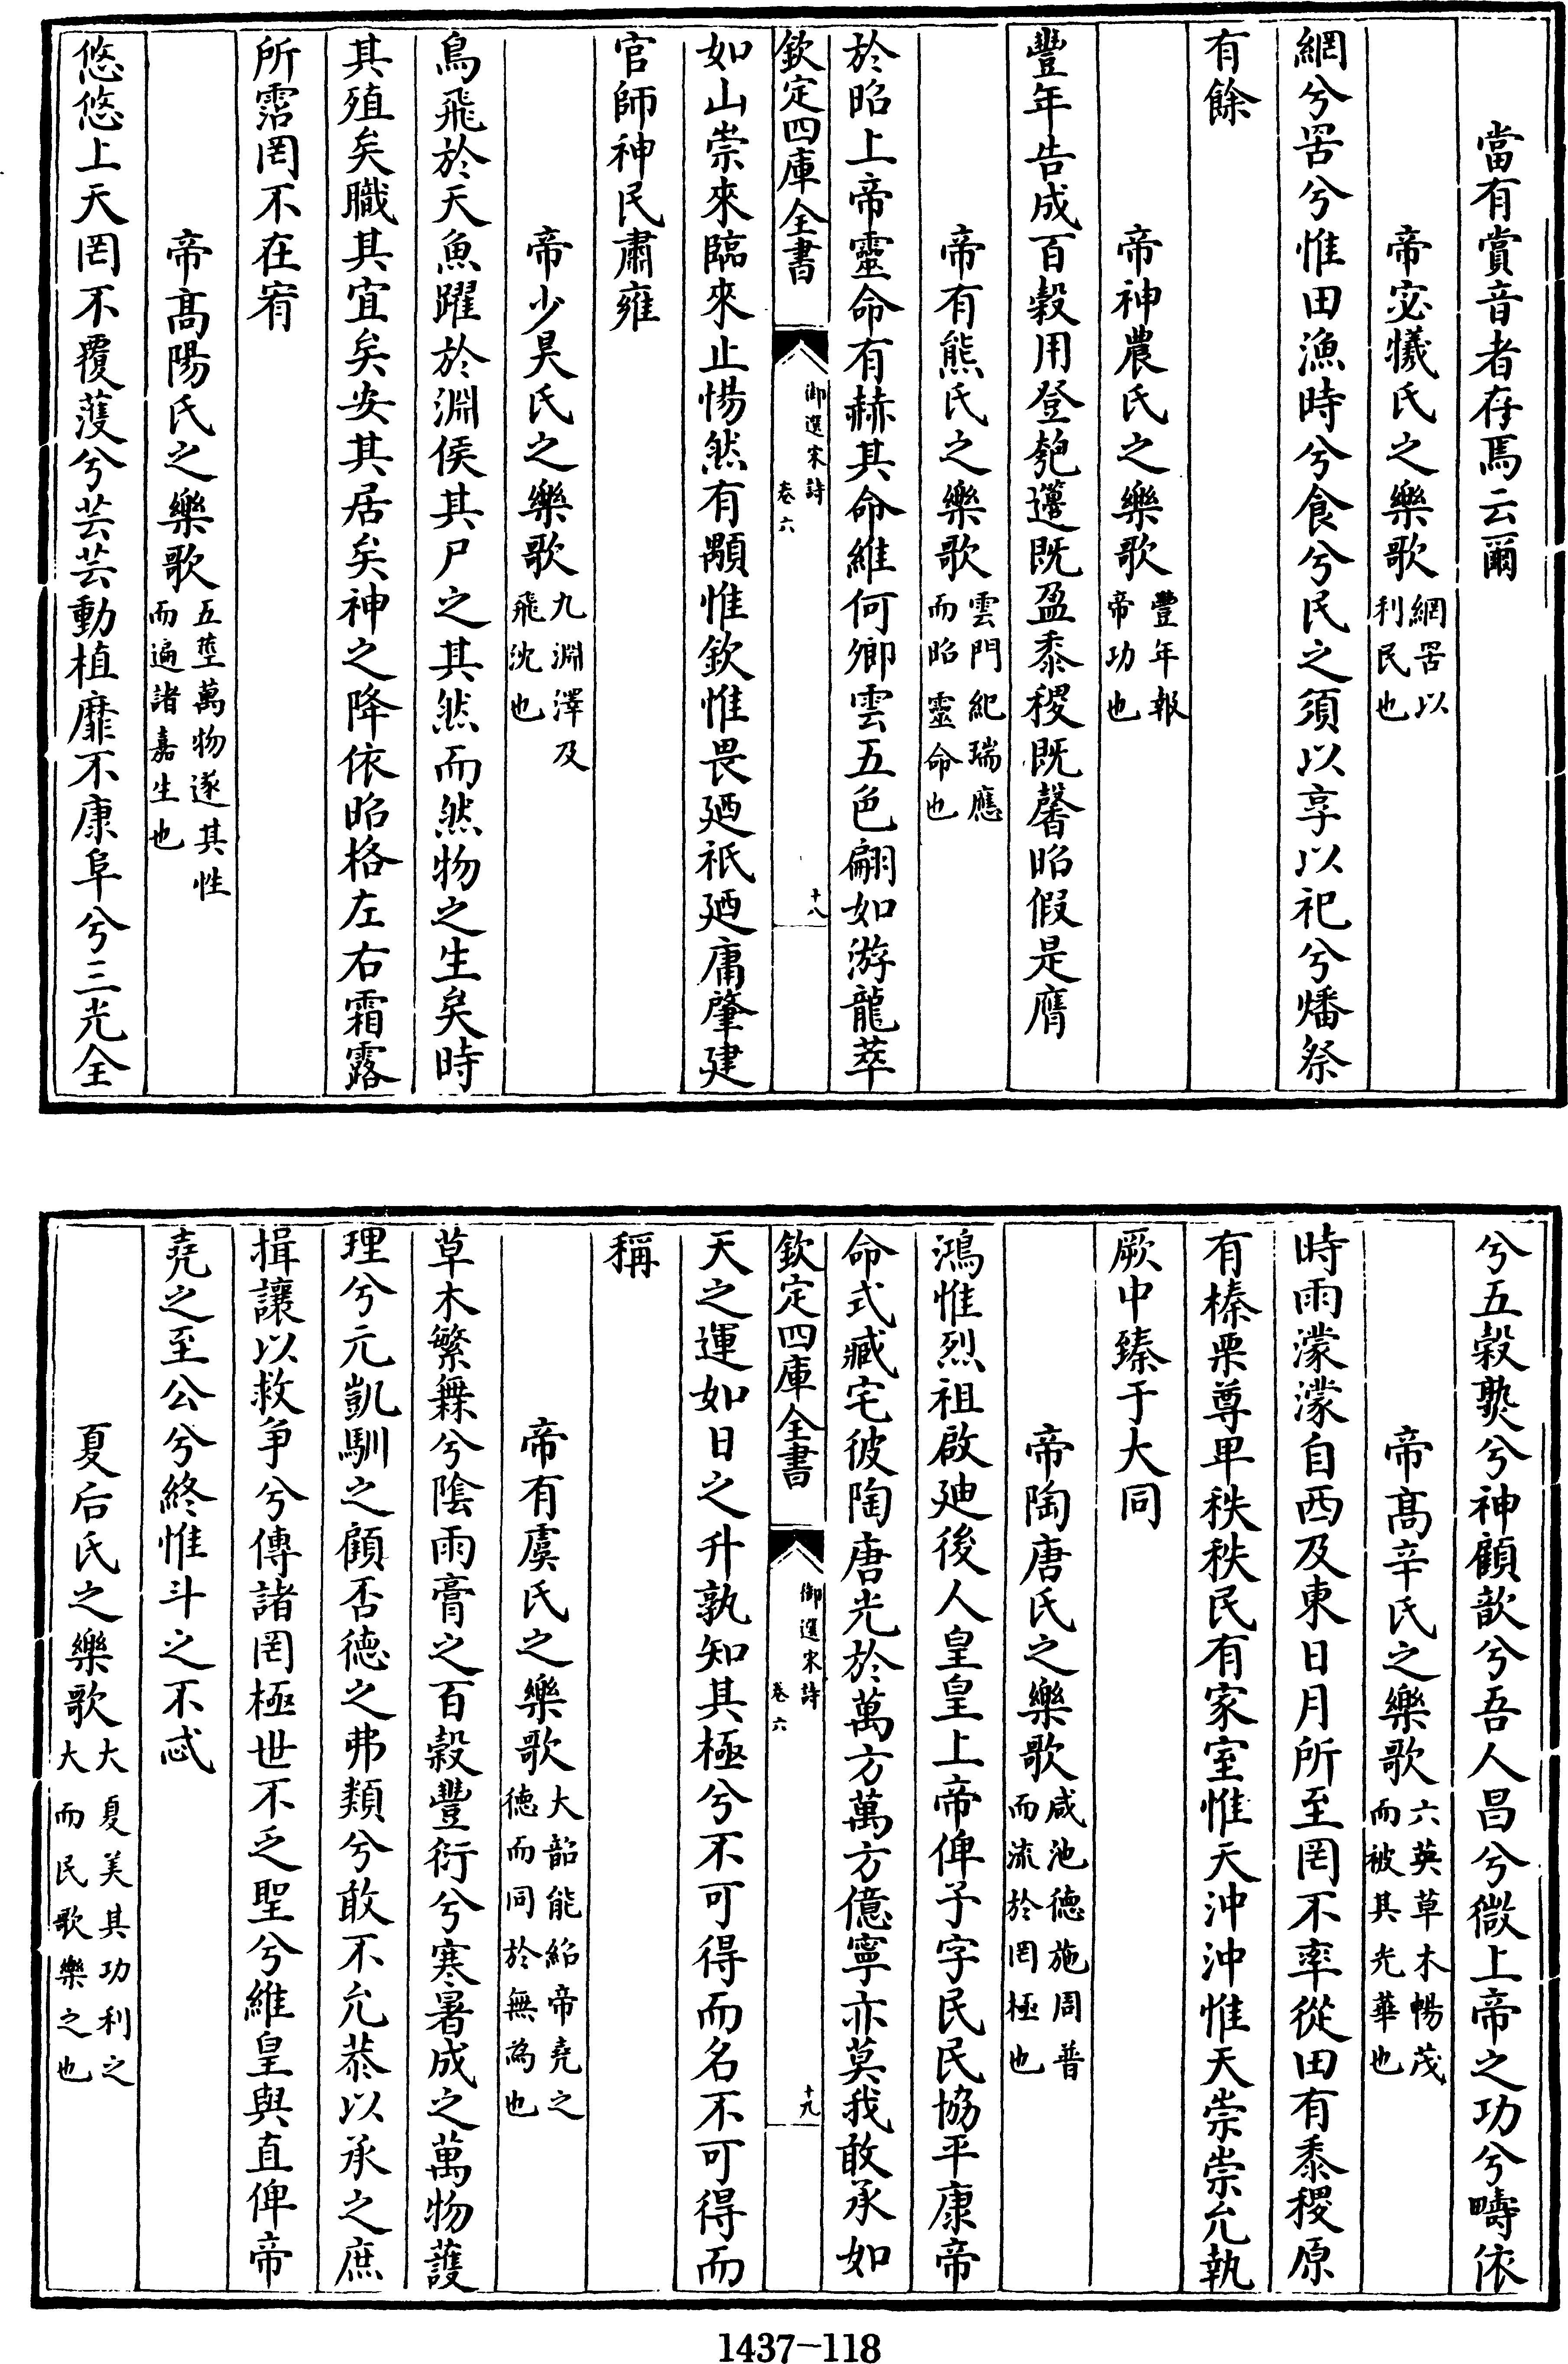 當有賞音者存焉云爾
帝宓犧氏之樂歌網罟以利民也
網兮罟兮惟田漁時兮食兮民之須以享以祀兮燔祭
有餘
帝神農氏之樂歌豐年報帝功也
豐年告成百穀用登匏籩既盈黍稷既馨昭假是膺
帝有熊氏之樂歌雲門紀瑞應而昭靈命也
於昭上帝靈命有赫其命維何卿雲五色翩如游龍萃
欽定四庫全書
御選宋詩
卷六
十八
如山崇來臨來止惕然有顒惟欽惟畏廼祇廼庸肇建
官師神民肅雍
帝少昊氏之樂歌九淵澤及飛沈也
鳥飛於天魚躍於淵侯其尸之其然而然物之生矣時
其殖矣職其宜矣安其居矣神之降依昭格左右霜露
所霑罔不在宥
帝高陽氏之樂歌五莖萬物遂其性而遍諸嘉生也
悠悠上天罔不覆蒦兮芸芸動植靡不康阜兮三光全
兮五穀熟兮神顧歆兮吾人昌兮微上帝之功兮疇依
帝高辛氏之樂歌六英草木暢茂而被其光華也
時雨濛濛自西及東日月所至罔不率從田有黍稷原
有榛栗尊卑秩秩民有家室惟天沖沖惟天崇崇允執
厥中臻于大同
帝陶唐氏之樂歌咸池德施周普而流於罔極也
鴻惟烈祖啟廸後人皇皇上帝俾子字民民協平康帝
命式臧宅彼陶唐光於萬方萬方億寧亦莫我敢承如
欽定四庫全書
御選宋詩
卷六
十九
天之運如日之升孰知其極兮不可得而名不可得而
稱
帝有虞氏之樂歌大韶能紹帝堯之德而同於無為也
草木繁蕪兮陰雨膏之百穀豐衍兮寒暑成之萬物護
理兮元凱馴之顧否德之弗類兮敢不允恭以承之庶
揖讓以救爭兮傳諸罔極世不乏聖兮維皇與直俾帝
堯之至公兮終惟斗之不忒
夏后氏之樂歌大夏美其功利之大而民歌樂之也
1437—118